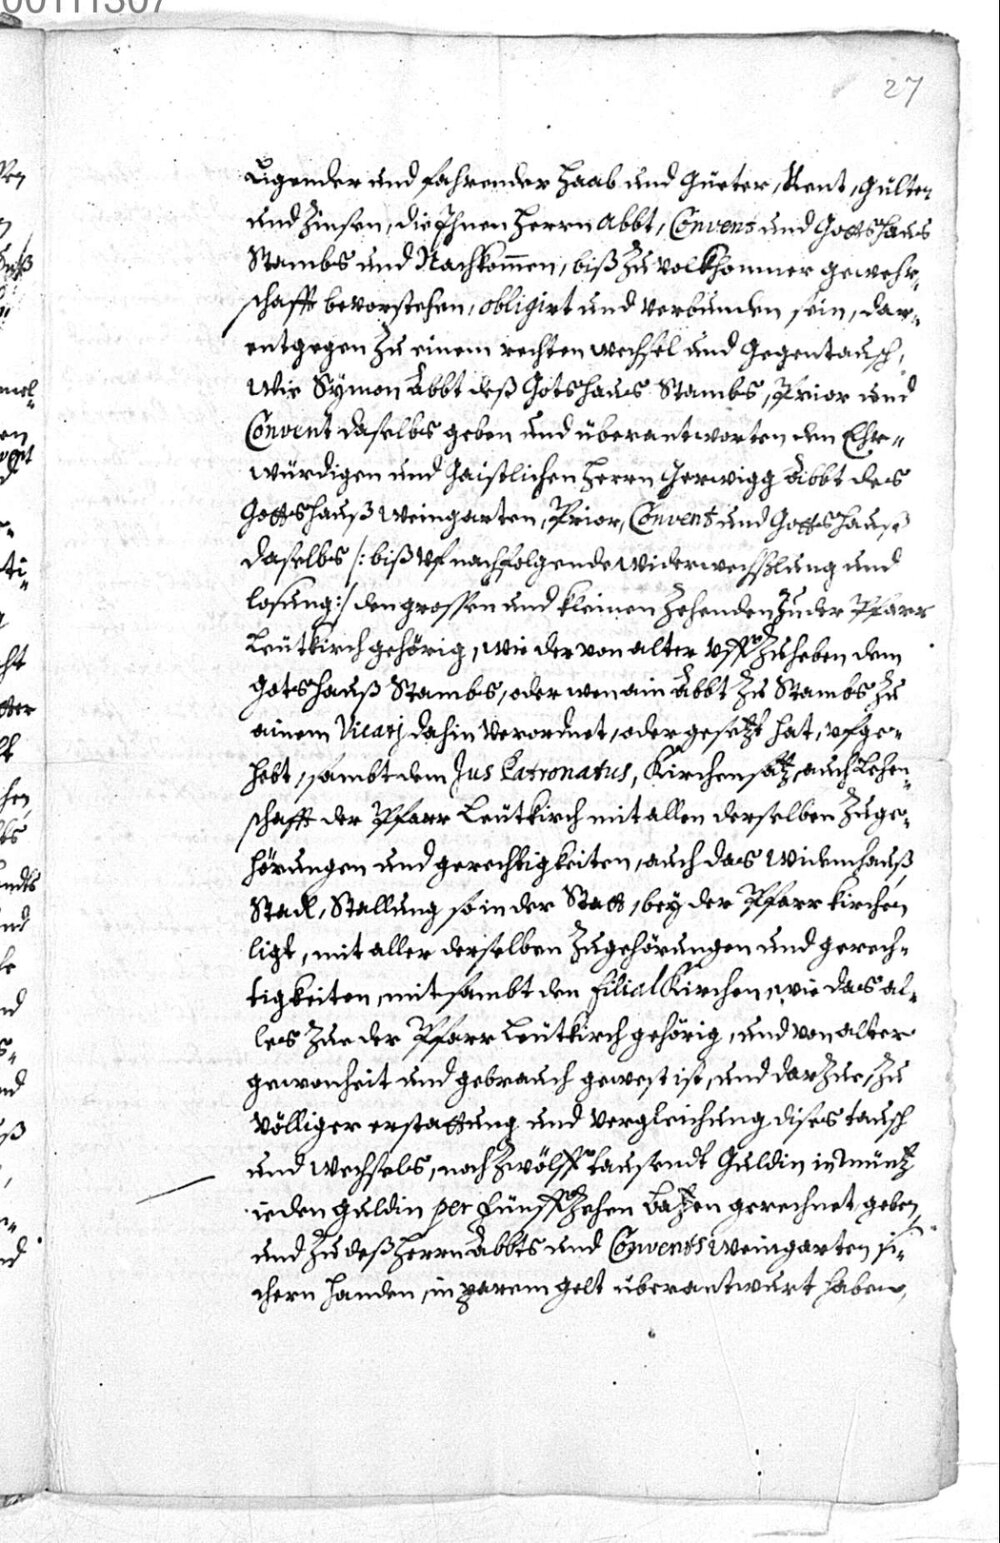 00111307
27
Ligender und fahrender Haab und Güeter, Rent, Gülten
und Zinsen, die Ihnen Herrn Abbt, Convent und Gottshaus
Stambs und Nachkommen, biß zu volkhomner gewehr„
schafft bevorstehen, obligirt und verbunden sein, dar„
entgegen zu einem rechten wechsel und gegentausch,
Wir Symon Abbt deß Gotshaus Stambs, Prior und
Convent daselbs geben und überantworten den Ehr„
würdigen und Gaistlichen Herrn Gerwigg Abbt des
Gottshauß Weingarten, Prior, Convent und Gottshauß
daselbs /: biß vf nachfolgende widerwechßlung und
losung :/ den grossen und kleinen Zehenden zu der Pfarr
Leütkirch gehörig, wie der von alter vff zuheben dem
Gotshauß Stambs, oder wen ain Abbt zu Stambs zu
ainem Vicarj dahin verordnet, oder gesetzt hat, vfge„
hebt, sambt dem Jus Patronatus, Kirchensatz, auch Lehen„
schafft der Pfarr Leütkirch mit allen derselben Zuge„
hörungen und gerechtigkeiten, auch das Widemhauß,
Stadl, Stallung so in der Statt, bey der Pfarrkirchen
ligt, mit aller derselben Zugehörungen und gerech„
tigkeiten, mit sambt den Filial Kirchen, wie das al„
les zue der Pfarr Leütkirch gehörig, und von alter
gewonheit und gebrauch gewest ist, und darzue, zu
völliger erstattung und vergleichung dises tausch
und wechsels, noch zwölff tausendt Guldin in müntz
ieden Guldin per fünffzehen Batzen gerechnet geben,
und zu deß Herrn Abbts und Convents Weingarten si„
chern Handen, in parem gelt überantwurt haben,